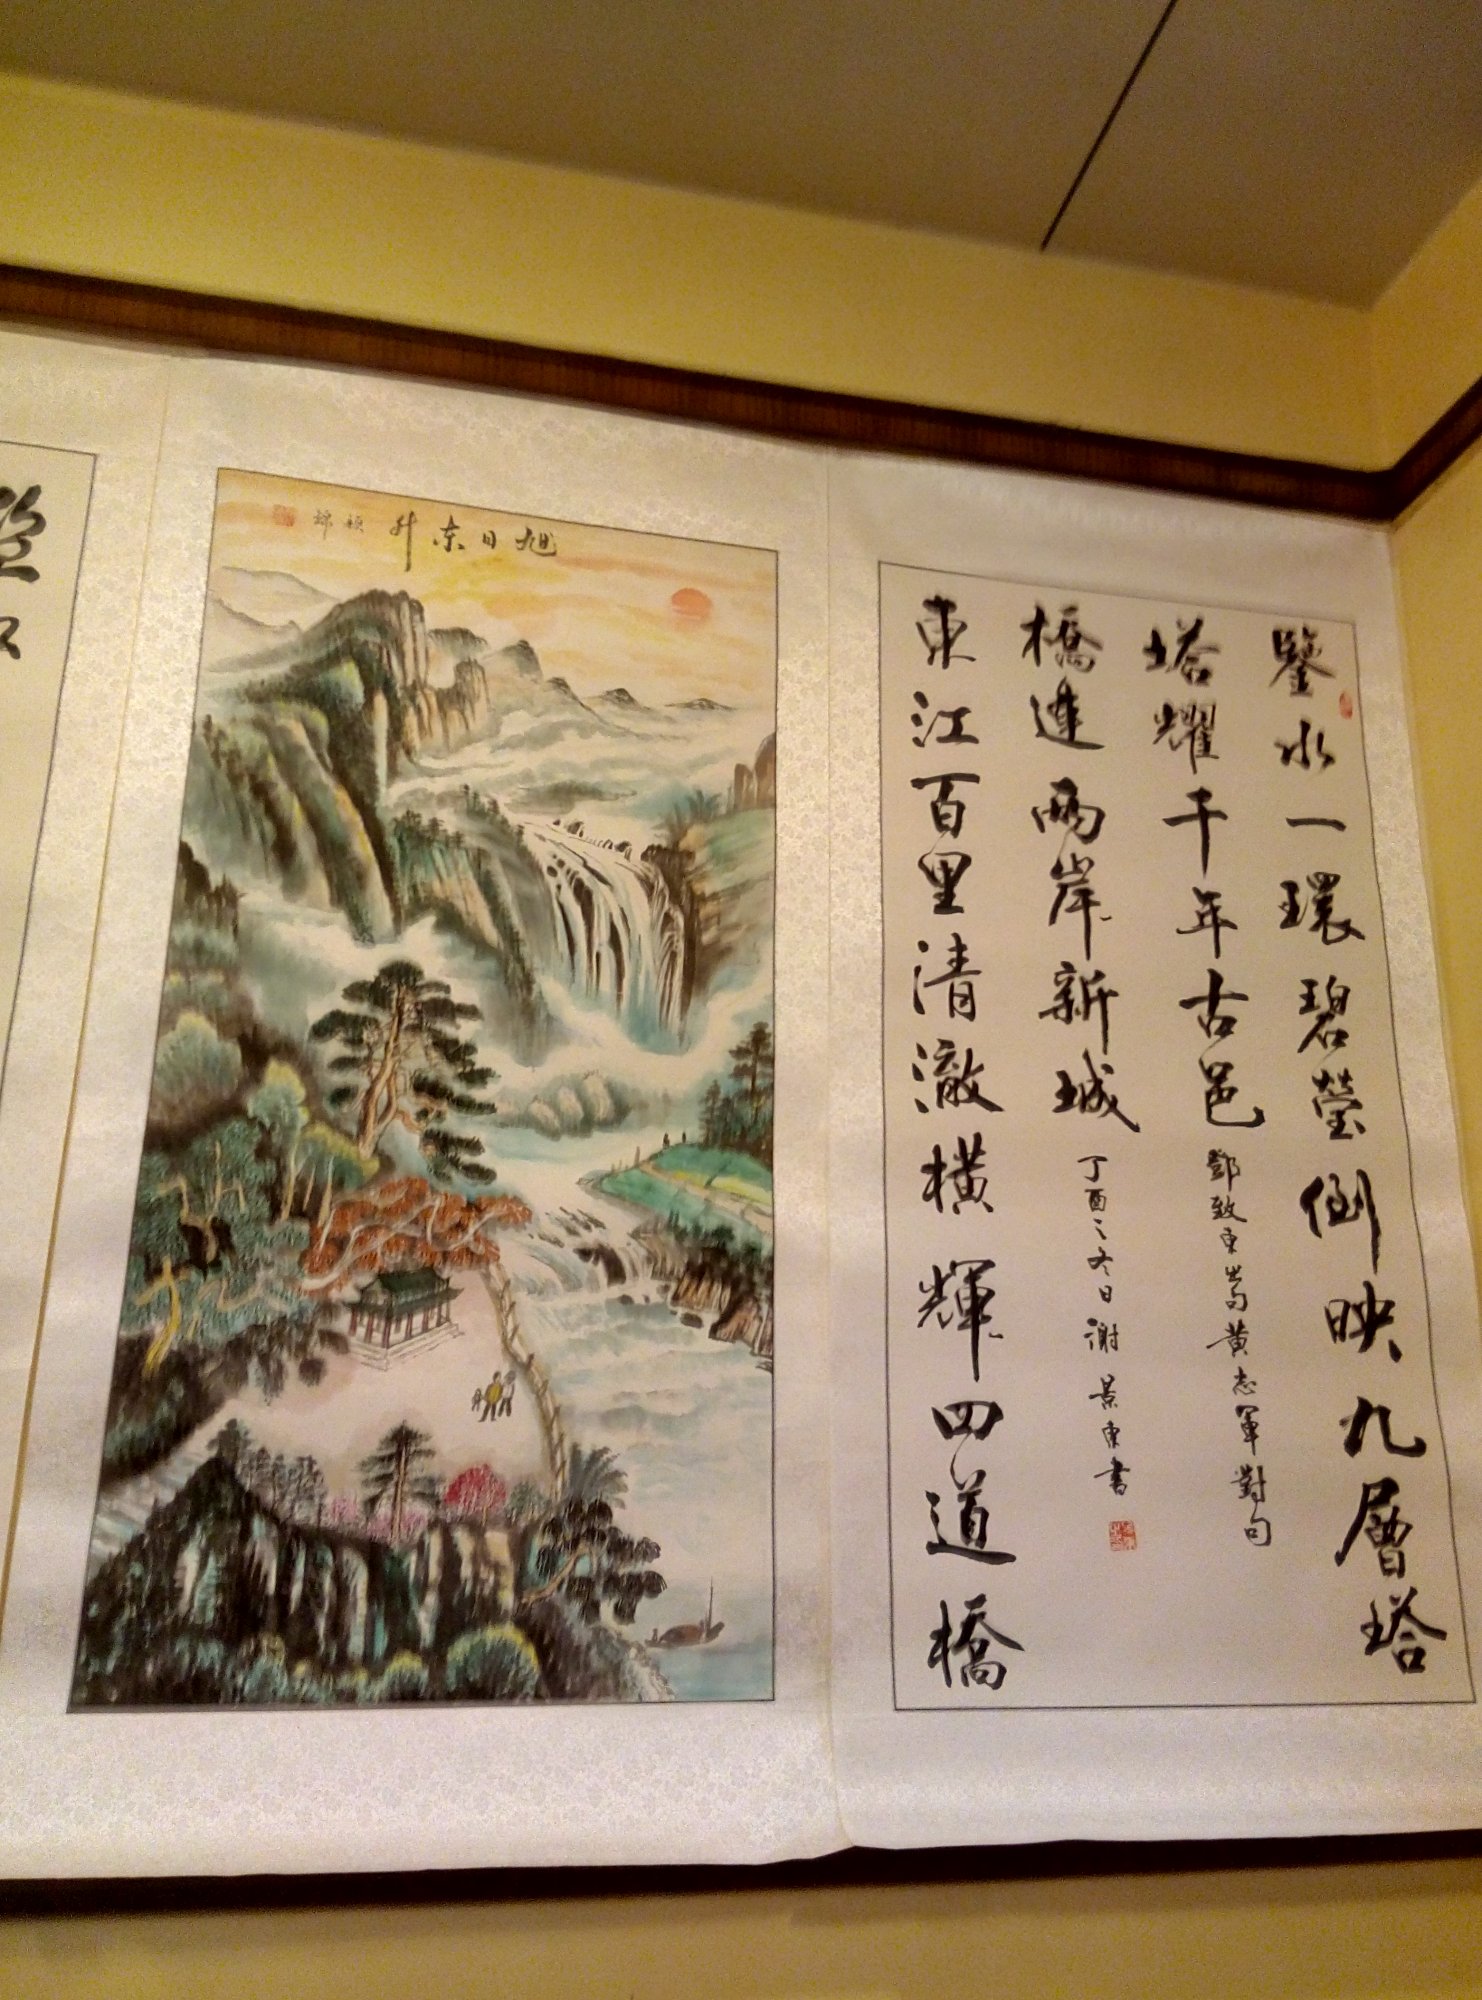 鑒水一環碧瑩倒映九層塔
塔耀千年古邑
鄧致東嵩黄志軍對句
橋連兩岸新城
丁酉之冬日謝景東書
東江百里清澈橫輝四道橋
旭日东升